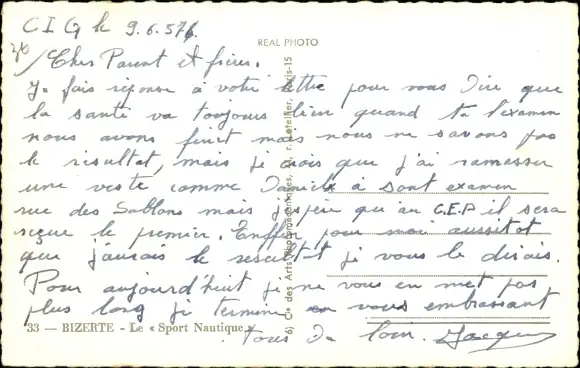 C I G le 9.6.57.
REAL PHOTO
Cher Parent et frères.
Je fais réponse à votre lettre pour vous dire que
la santé va toujours bien quand ta l'examen
nous avons finit mais nous ne savons pas
le risultat, mais je crois que j'ai ramasser
une veste comme Daniel à sont examen
rue des Sablons mais j'espère qu'au C.E.P il sera
reçue le premier. Enffin pour moi aussitot
que j'aurais le resultat je vous le dirais.
Pour aujourd'huit je ne vous en met pas
plus long je termine en vous embrassant
tous de loin. Jacques
33 — BIZERTE - Le « Sport Nautique »
Cie des Arts Photomécaniques, r. Letellier, Paris-15